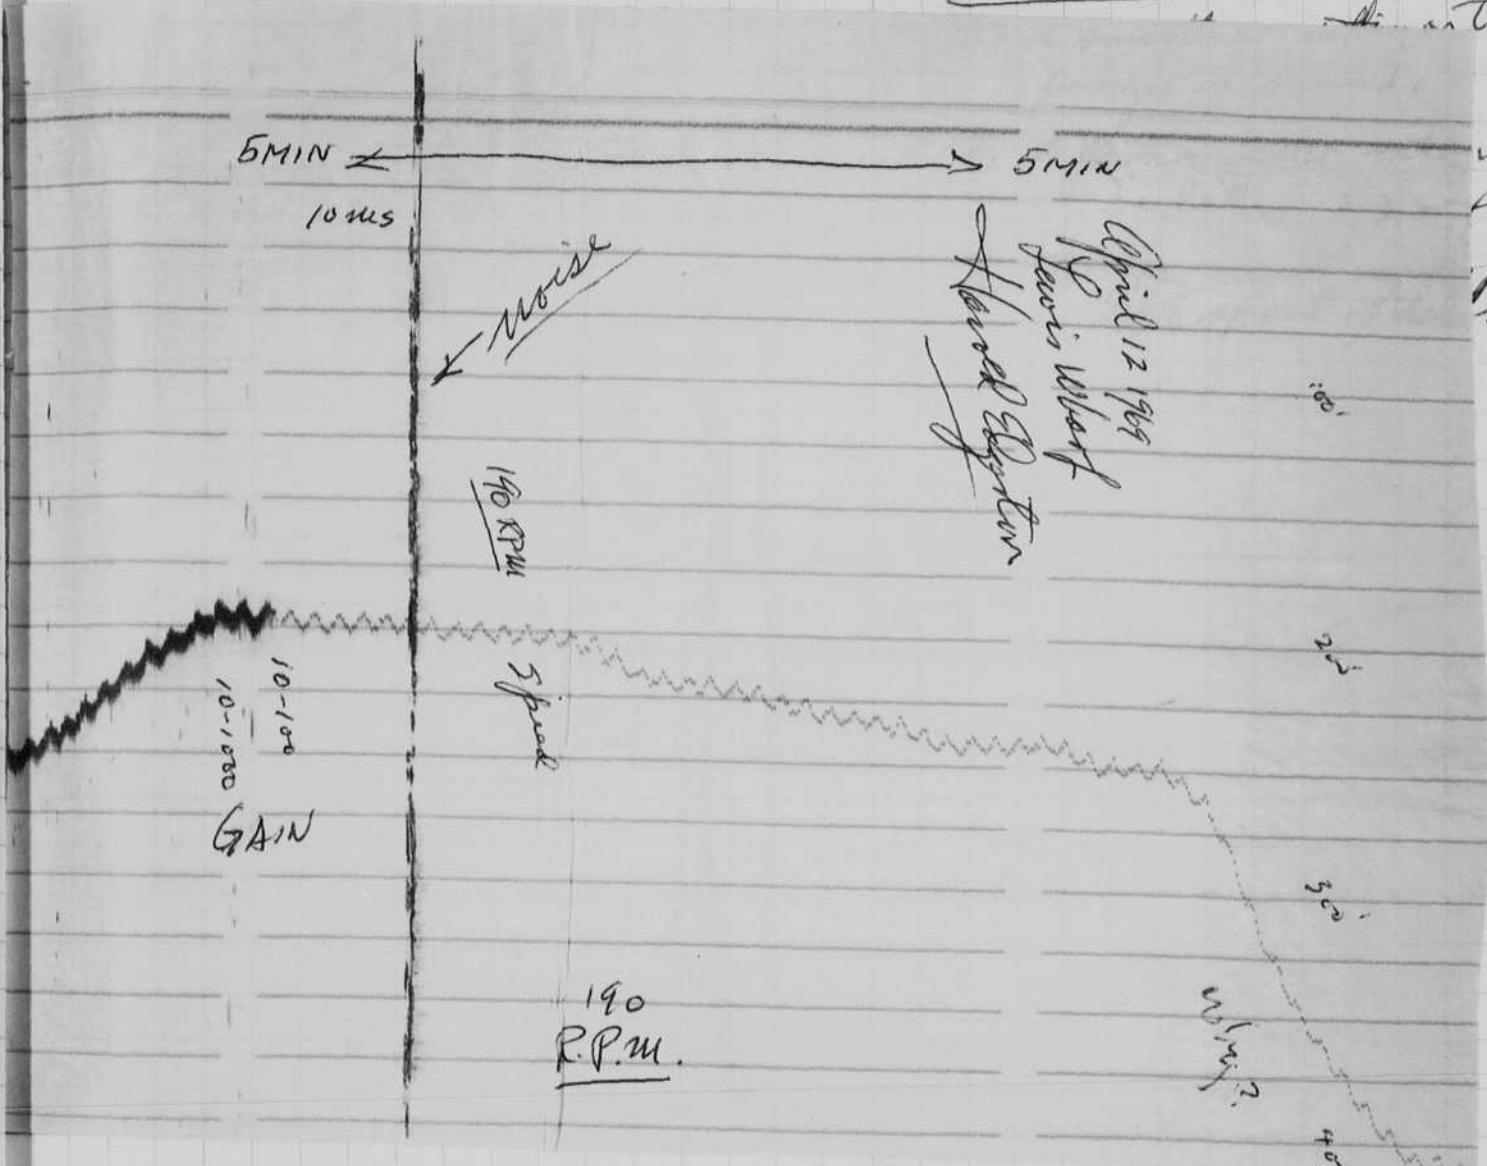 5MIN
5MIN
10 ms
Noise
April 12 1969
Lewis Wharf
Harold Edgerton
190 RPM
Speed
10-100
10-1000
GAIN
190
R.P.M.
Why?